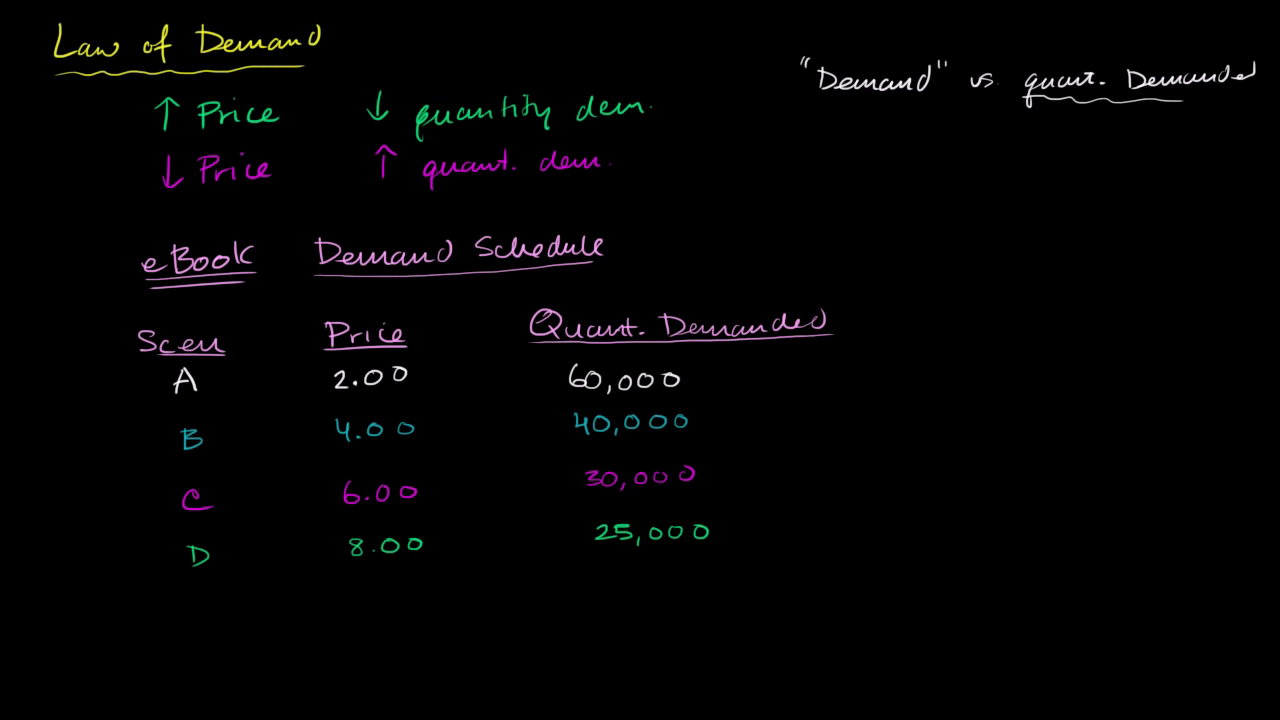 Law of Demand
"Demand" vs. quant. Demanded
↑ Price ↓ quantity dem.
↓ Price ↑ quant. dem.
eBook Demand Schedule
Scen Price Quant. Demanded
A 2.00 60,000
B 4.00 40,000
C 6.00 30,000
D 8.00 25,000